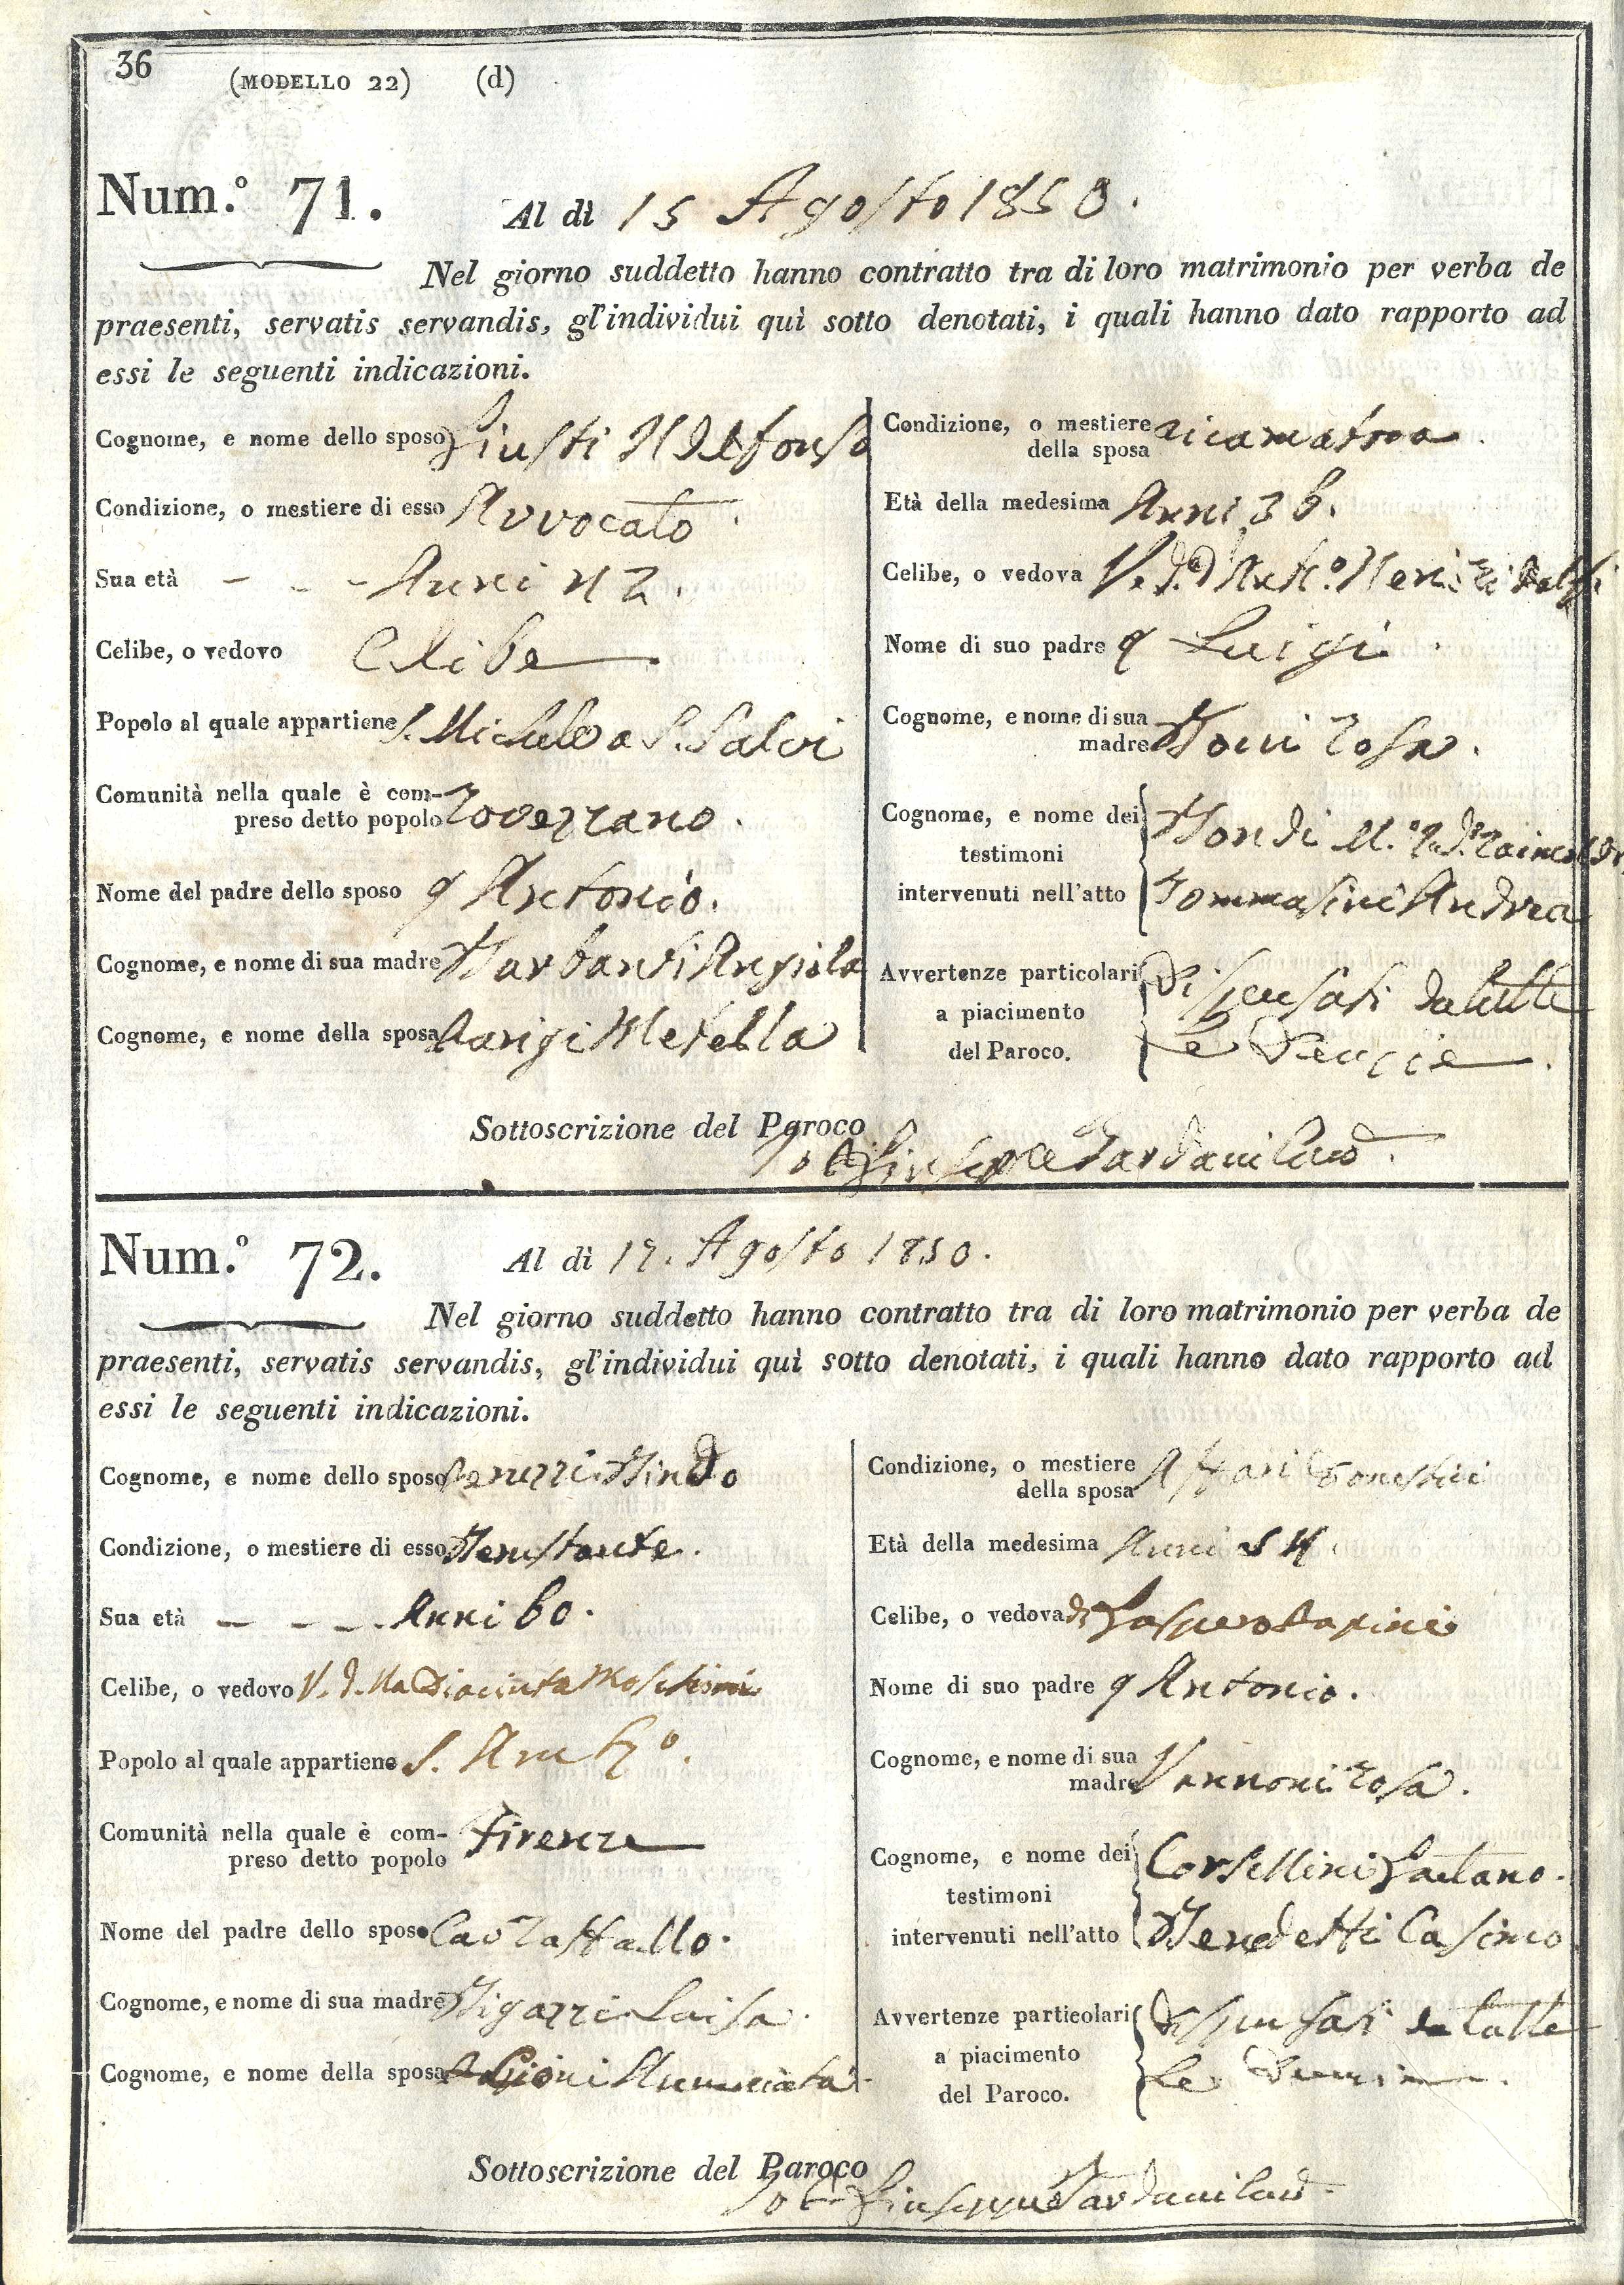 36
(MODELLO 22) (d)
Num.º 71. Al dì 15 Agosto 1850.
Nel giorno suddetto hanno contratto tra di loro matrimonio per verba de
praesenti, servatis servandis, gl'individui quì sotto denotati, i quali hanno dato rapporto ad
essi le seguenti indicazioni.
Cognome, e nome dello sposo Giusti Ildefonso
Condizione, o mestiere di esso Avvocato.
Sua età - - - Anni 42.
Celibe, o vedovo Celibe
Popolo al quale appartiene S. Michele a S. Salvi
Comunità nella quale è com-
preso detto popolo Rovezzano.
Nome del padre dello sposo q Antonio.
Cognome, e nome di sua madre Barbanti Angiola
Cognome, e nome della sposa Parigi Metella
Condizione, o mestiere
della sposa ricamatora.
Età della medesima Anni 36.
Celibe, o vedova V. d.
Nome di suo padre q Luigi.
Cognome, e nome di sua
madre Boni Rosa.
Cognome, e nome dei
testimoni Bondi
intervenuti nell'atto Tommasini Andrea
Avvertenze particolari
a piacimento
del Paroco.
Dispensati da tutte
le Denuncie.
Sottoscrizione del Paroco
Giuseppe
Num.º 72. Al dì 17. Agosto 1850.
Nel giorno suddetto hanno contratto tra di loro matrimonio per verba de
praesenti, servatis servandis, gl'individui quì sotto denotati, i quali hanno dato rapporto ad
essi le seguenti indicazioni.
Cognome, e nome dello sposo Bindo
Condizione, o mestiere di esso Benestante.
Sua età - - - Anni 60.
Celibe, o vedovo V. d.
Popolo al quale appartiene S. Amb.º
Comunità nella quale è com-
preso detto popolo Firenze
Nome del padre dello sposo Cav Raffaello.
Cognome, e nome di sua madre Bigazzi Luisa.
Cognome, e nome della sposa Annunziata
Condizione, o mestiere
della sposa Affari Domestici
Età della medesima Anni 54.
Celibe, o vedova di Gaspero Papini
Nome di suo padre q Antonio.
Cognome, e nome di sua
madre Vannoni Rosa.
Cognome, e nome dei
testimoni Corsellini Gaetano.
intervenuti nell'atto Benedetti Casimo
Avvertenze particolari
a piacimento
del Paroco.
Dispensati da tutte
le
Sottoscrizione del Paroco
Giuseppe